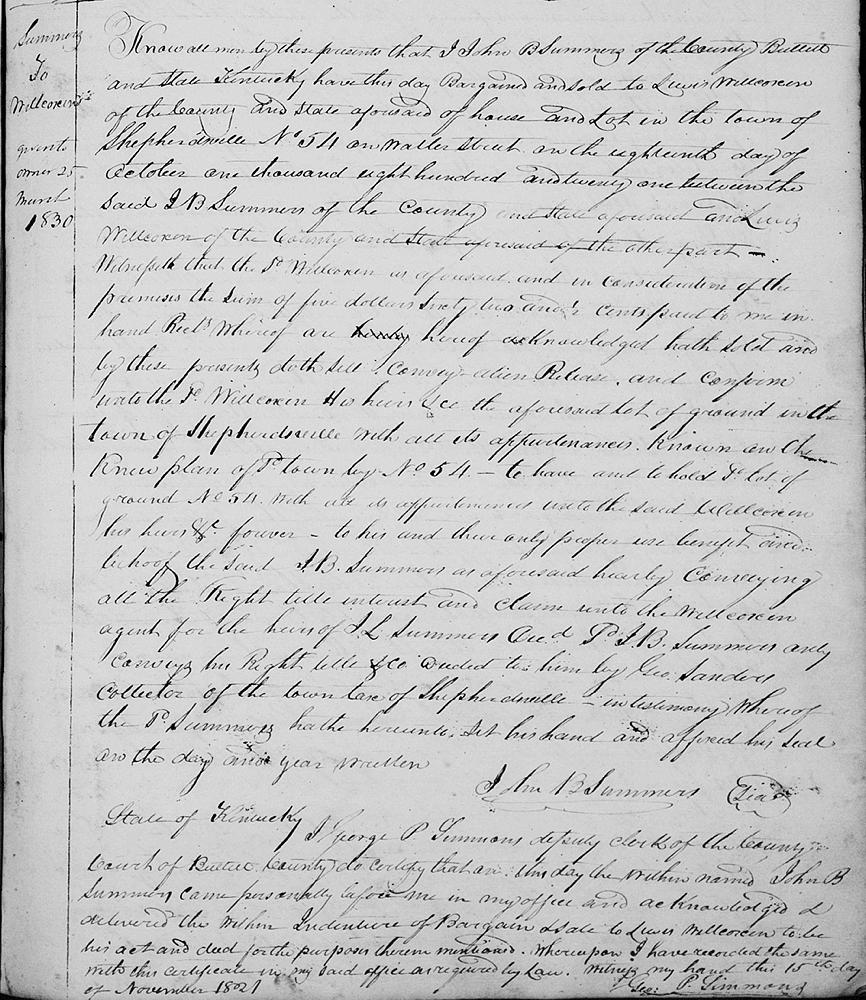 Summers
To
Willcoxen
given to
owner 25
March
1830
Know all men by these presents that I John B Summers of the County Bullitt
and State Kentucky have this day Bargained and sold to Lewis Willcoxen
of the County and State aforesaid of house and Lot in the town of
Shepherdsville No 54 on Walter Street on the eighteenth day of
October one thousand eight hundred and twenty one between the
said J B Summers of the County and State aforesaid and Lewis
Willcoxen of the County and State aforesaid of the other part —
Witnesseth that the Sd Willcoxen as aforesaid and in consideration of the
premises the sum of five dollars Sixty two and ½ cents paid to me in
hand Rect Whereof are hereof acknowledged hath sold and
by these presents doth sell Convey alien Release, and confirm
unto the Sd Willcoxen His heirs &c the aforesaid Lot of ground in the
town of Shepherdsville with all its appurtenances. Known on the
Knew plan of Sd town by No 54 — to have and to hold Sd Lot of
ground No 54 with all its appurtenances unto the said Willcoxen
his heirs &c forever — to his and their only proper use benefit and
behoof the said J.B. Summers as aforesaid hearby Conveying
all the Right title interest and claim unto the Willcoxen
agent for the heirs of J L Summers Decd Sd J.B. Summers only
Conveys his Right title &Co Deeded to him by Geo. Sanders
Collector of the town tax of Shepherdsville — in testimony Whereof
the Sd Summers hathe hereunto Set his hand and affixed his Seal
on the day and year written
John B Summers Seal
State of Kentucky
I George P Simmons deputy clerk of the County
Court of Bullitt County do certify that on this day the within named John B
Summers came personally before me in my office and acknowledged &
delivered the within Indenture of Bargain & Sale to Lewis Willcoxen to be
his act and deed for the purposes therein mentioned. Whereupon I have recorded the same
with this certificate in my said office as required by Law. Witness my hand this 15th day
of November 1821 Geo: P. Simmons